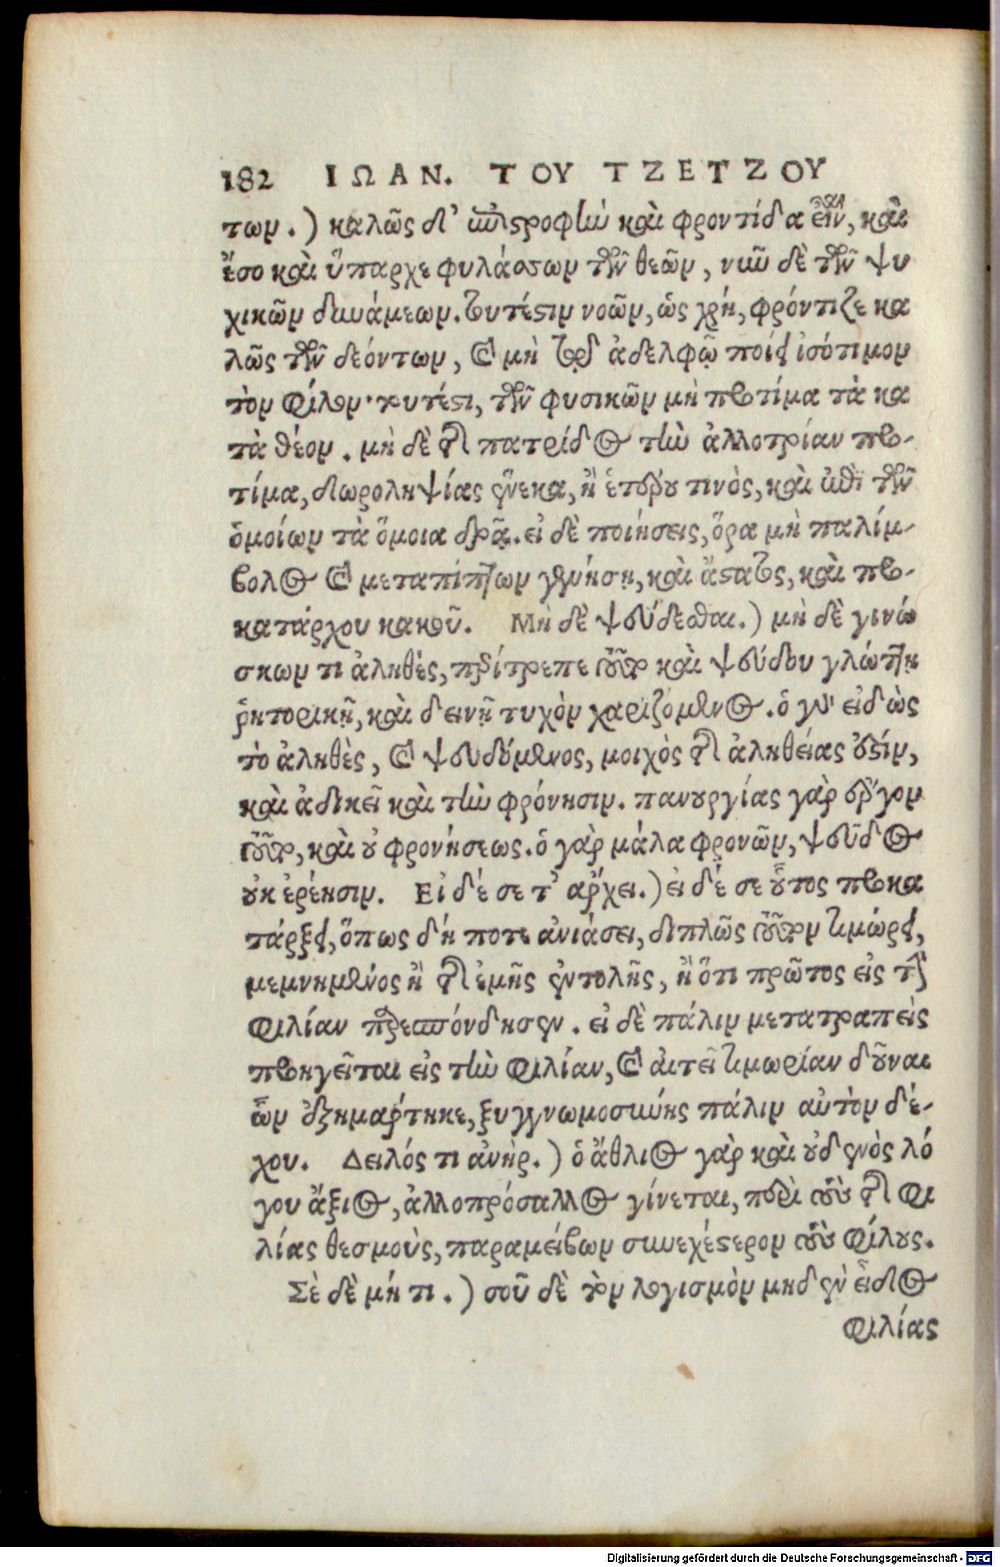 182 ΙΩΑΝ. ΤΟΥ ΤΖΕΤΖΟΥ
των.) καλῶς δι' ἐπιστροφὴν καὶ φροντίδα εἶν, καὶ
ἔσο καὶ ὕπαρχε φυλάσσων τῶν θεῶν, νῦν δὲ τῶν ψυ
χικῶν δυνάμεων. τουτέστιν νοῶν, ὡς χρή, φρόντιζε κα
λῶς τῶν δεόντων, καὶ μὴ τῷ ἀδελφῷ ποίει ἰσότιμον
τὸν φίλον· τουτέστι, τῶν φυσικῶν μὴ προτίμα τὰ κα
τὰ θέσιν. μὴ δὲ τῆς πατρίδος τὴν ἀλλοτρίαν προ-
τίμα, δωροληψίας ἕνεκα, ἢ ἑτέρου τινὸς, καὶ ἐπὶ τῶν
ὁμοίων τὰ ὅμοια δρᾶ. εἰ δὲ ποιήσεις, ὅρα μὴ παλίμ-
βολος καὶ μεταπίπτων γενήσῃ, καὶ ἄστατος, καὶ προ-
κατάρχου κακοῦ. Μὴ δὲ ψεύδεσθαι.) μὴ δὲ γινώ
σκων τι ἀληθὲς, περίτρεπε τοῦτο καὶ ψεύδου γλώττῃ
ῥητορικῇ, καὶ δεινῇ τυχὸν χαριζόμενος. ὁ γὰρ εἰδὼς
τὸ ἀληθὲς, καὶ ψευδόμενος, μοιχὸς τῆς ἀληθείας ἐστίν,
καὶ ἀδικεῖ καὶ τὴν φρόνησιν. πανουργίας γὰρ ἔργον
τοῦτο, καὶ οὐ φρονήσεως. ὁ γὰρ μάλα φρονῶν, ψεῦδος
οὐκ ἐρέησιν. Εἰ δέ σε τ' ἄρχει.) εἰ δέ σε οὗτος προκα
τάρξει, ὅπως δή ποτε ἀνιάσει, διπλῶς τοῦτον τιμώρει,
μεμνημένος ἢ τῆς ἐμῆς ἐντολῆς, ἢ ὅτι πρῶτος εἰς τὴν
φιλίαν παρεσπόνδησεν. εἰ δὲ πάλιν μετατραπεὶς
προηγεῖται εἰς τὴν φιλίαν, καὶ αἰτεῖ τιμωρίαν δοῦναι
ὧν ἐξημάρτηκε, ξυγγνωμοσύνης πάλιν αὐτὸν δέ-
χου. Δειλός τι ἀνὴρ.) ὁ ἄθλιος γὰρ καὶ οὐδενὸς λό
γου ἄξιος, ἀλλοπρόσαλλος γίνεται, περὶ τοὺς τῆς φι
λίας θεσμοὺς, παραμείβων συνεχέστερον τοὺς φίλους.
Σὲ δὲ μή τι.) σοῦ δὲ τὸν λογισμὸν μηδὲν εἶδος
φιλίας
Digitalisierung gefördert durch die Deutsche Forschungsgemeinschaft - DFG